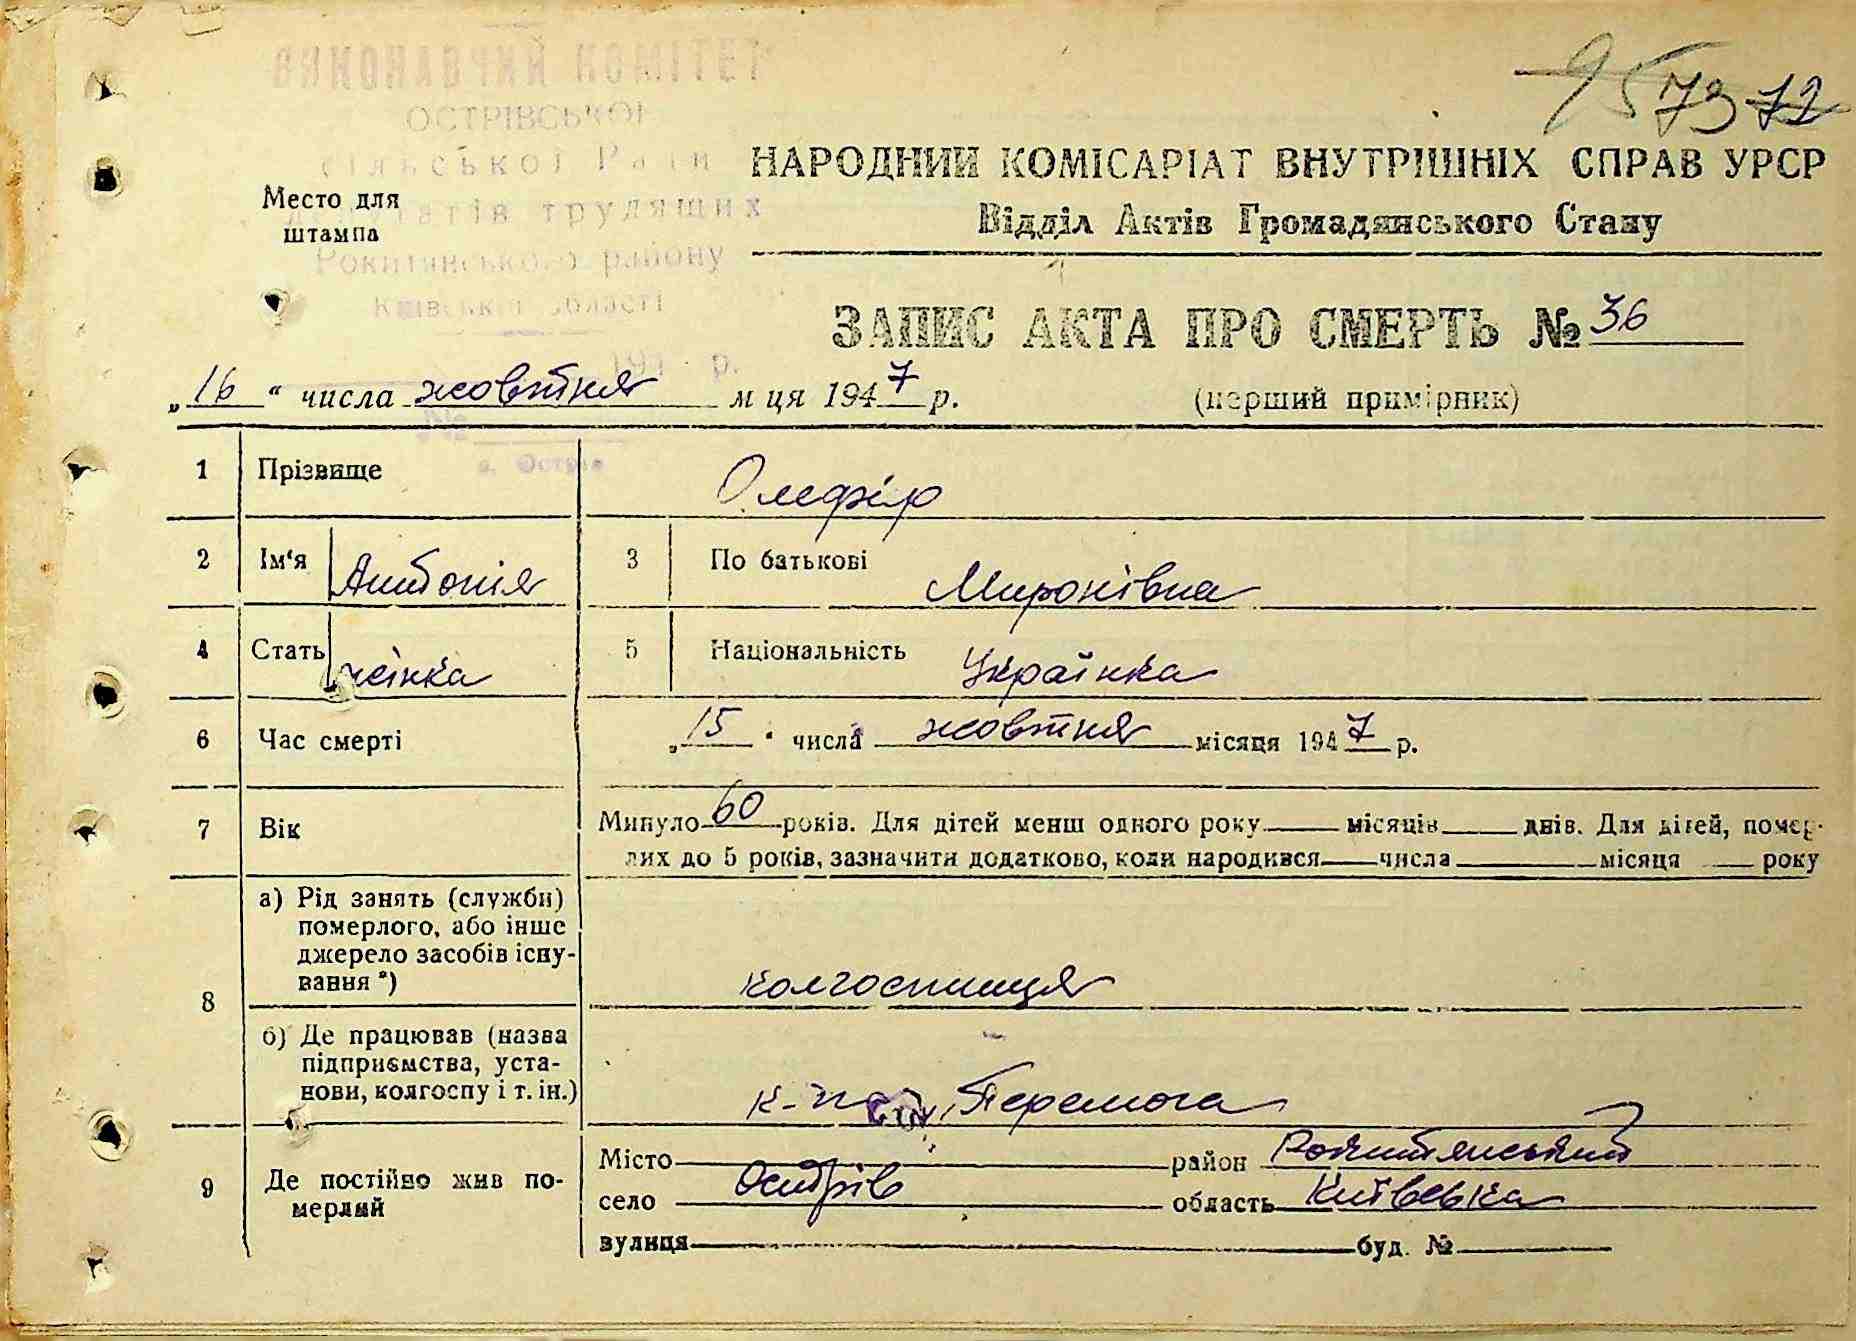 ВИКОНАВЧИЙ КОМІТЕТ
ОСТРІВСЬКОЇ
сільської Ради
депутатів трудящих
Рокитянського району
Київської області
194 р.
№
с. Острів
95 73 72
Место для
штампа
НАРОДНИЙ КОМІСАРІАТ ВНУТРІШНІХ СПРАВ УРСР
Відділ Актів Громадянського Стану
ЗАПИС АКТА ПРО СМЕРТЬ № 36
„16“ числа жовтня м ця 1947 р. (перший примірник)
1 Прізвище Олефір
2 Ім'я Антонія 3 По батькові Миронівна
4 Стать жінка 5 Національність Українка
6 Час смерті „15“ числа жовтня місяця 1947 р.
7 Вік Минуло 60 років. Для дітей менш одного року місяців днів. Для дітей, помер-
лих до 5 років, зазначити додатково, коли народився числа місяця року
8 а) Рід занять (служби)
померлого, або інше
джерело засобів існу-
вання *) колгоспниця
б) Де працював (назва
підприємства, уста-
нови, колгоспу і т. ін.) к-п „Перемога
9 Де постійно жив по-
мерлий
Місто район Рокитянський
село Острів область Київська
вулиця буд. №